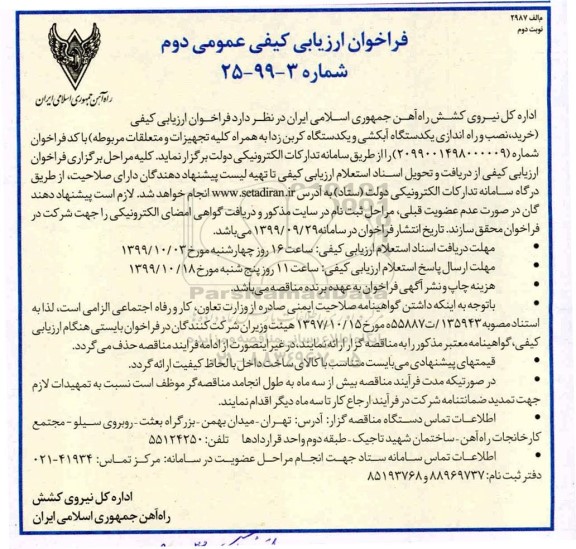 م/الف ۲۹۸۷
نوبت دوم
فراخوان ارزیابی کیفی عمومی دوم
شماره ۳-۹۹-۲۵
راه‌آهن جمهوری اسلامی ایران
اداره کل نیروی کشش راه‌آهن جمهوری اسلامی ایران در نظر دارد فراخوان ارزیابی کیفی
(خرید، نصب و راه اندازی یکدستگاه آبکشی و یکدستگاه کربن زدا به همراه کلیه تجهیزات و متعلقات مربوطه) با کد فراخوان
شماره (۲۰۹۹۰۰۱۴۹۸۰۰۰۰۰۹) را از طریق سامانه تدارکات الکترونیکی دولت برگزار نماید. کلیه مراحل برگزاری فراخوان
ارزیابی کیفی از دریافت و تحویل اسناد استعلام ارزیابی کیفی تا تهیه لیست پیشنهاد دهندگان دارای صلاحیت، از طریق
درگاه سامانه تدارکات الکترونیکی دولت (ستاد) به آدرس www.setadiran.ir انجام خواهد شد. لازم است پیشنهاد دهند
گان در صورت عدم عضویت قبلی، مراحل ثبت نام در سایت مذکور و دریافت گواهی امضای الکترونیکی را جهت شرکت در
فراخوان محقق سازند. تاریخ انتشار فراخوان در سامانه ۱۳۹۹/۰۹/۲۹ می‌باشد.
• مهلت دریافت اسناد استعلام ارزیابی کیفی: ساعت ۱۶ روز چهارشنبه مورخ ۱۳۹۹/۱۰/۰۳
• مهلت ارسال پاسخ استعلام ارزیابی کیفی: ساعت ۱۱ روز پنج شنبه مورخ ۱۳۹۹/۱۰/۱۸
• هزینه چاپ و نشر آگهی فراخوان به عهده برنده مناقصه می‌باشد.
• باتوجه به اینکه داشتن گواهینامه صلاحیت ایمنی صادره از وزارت تعاون، کار و رفاه اجتماعی الزامی است، لذا به
استناد مصوبه ۱۳۵۹۴۳/ت۵۵۸۸۷ه مورخ ۱۳۹۷/۱۰/۱۵ هیئت وزیران شرکت کنندگان در فراخوان بایستی هنگام ارزیابی
کیفی، گواهینامه معتبر مذکور را به مناقصه گزار ارائه نمایند در غیر اینصورت از ادامه فرآیند مناقصه حذف می گردد.
• قیمتهای پیشنهادی می‌بایست متناسب با کالای ساخت داخل با لحاظ کیفیت ارائه گردد.
• در صورتیکه مدت فرآیند مناقصه بیش از سه ماه به طول انجامد مناقصه گر موظف است نسبت به تمهیدات لازم
جهت تمدید ضمانتنامه شرکت در فرآیند ارجاع کار تا سه ماه دیگر اقدام نمایند.
• اطلاعات تماس دستگاه مناقصه گزار: آدرس: تهران - میدان بهمن - بزرگراه بعثت - روبروی سیلو - مجتمع
کارخانجات راه‌آهن - ساختمان شهید تاجیک - طبقه دوم واحد قراردادها تلفن: ۵۵۱۲۴۲۵۰
• اطلاعات تماس سامانه ستاد جهت انجام مراحل عضویت در سامانه: مرکز تماس: ۴۱۹۳۴-۰۲۱
دفتر ثبت نام: ۸۸۹۶۹۷۳۷ و ۸۵۱۹۳۷۶۸
اداره کل نیروی کشش
راه‌آهن جمهوری اسلامی ایران
ParsNamadData